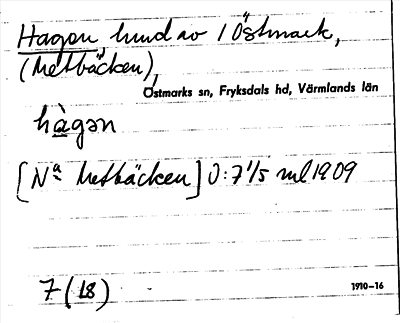 Hagon hundav 1 Östmark,
(Metbäcken),
Östmarks sn, Fryksdals hd, Värmlands län
hàgǝn
[Na Metbäcken] O:7 1/5 ml 1909
7 (18)
1910-16